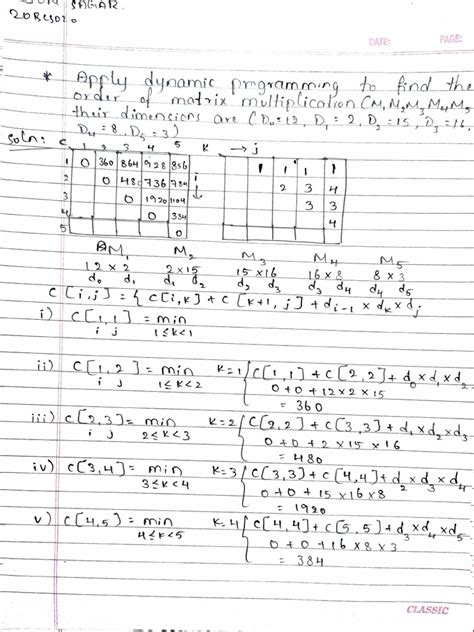 SAGAR
20BCS020
DATE: PAGE:
* Apply dynamic prgramming to find the
order of matrix multiplication (M, M2 M3 M4 M5
their dimensions are (D0=12, D1=2, D2=15, D3=16
D4=8, D5=3)
Soln: C 1 2 3 4 5 K → j
1 0 360 864 928 856 1 1 1 1
2 0 480 736 784 i ↓ 2 3 4
3 0 1920 1104 3 3
4 0 384 4
5 0
M1 M2 M3 M4 M5
12 × 2 2×15 15×16 16×8 8×3
d0 d1 d1 d2 d2 d3 d3 d4 d4 d5
C[i,j] = { C[i,k] + C[k+1, j] + di-1 × dk × dj
i) C[1,1] = min
i j 1≤k<1
ii) C[1,2] = min K=1 { C[1,1] + C[2,2] + d0×d1×d2
i j 1≤k<2 0+0+12×2×15
= 360
iii) C[2,3] = min K=2 { C[2,2] + C[3,3] + d1×d2×d3
i j 2≤k<3 0+0+2×15×16
= 480
iv) C[3,4] = min K=3 { C[3,3] + C[4,4] + d2×d3×d4
3≤k<4 0+0+15×16×8
= 1920
v) C[4,5] = min K=4 { C[4,4] + C[5,5] + d3×d4×d5
4≤k<5 0+0+16×8×3
= 384
CLASSIC